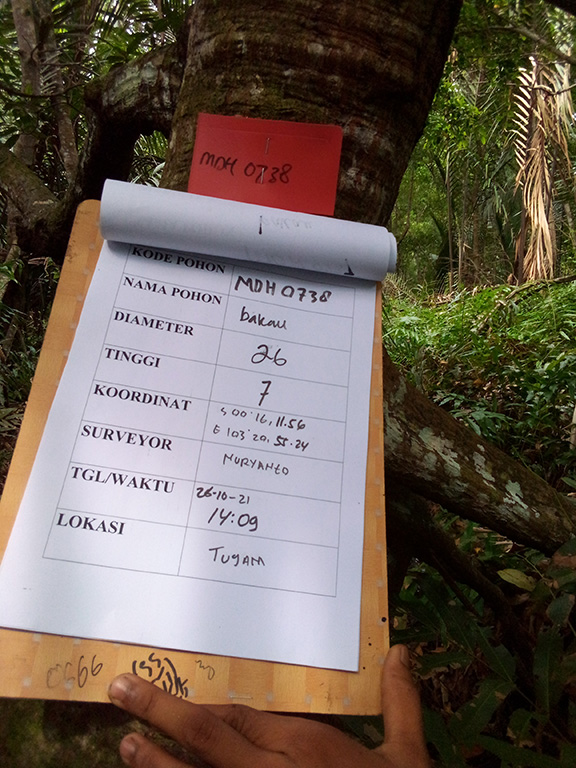 MDH 0738
KODE POHON MDH 0738
NAMA POHON bakau
DIAMETER 26
TINGGI 7
KOORDINAT S 00°16, 11.56
E 103°20, 55.24
SURVEYOR NURYANTO
TGL/WAKTU 26-10-21
14:09
LOKASI TUGAM